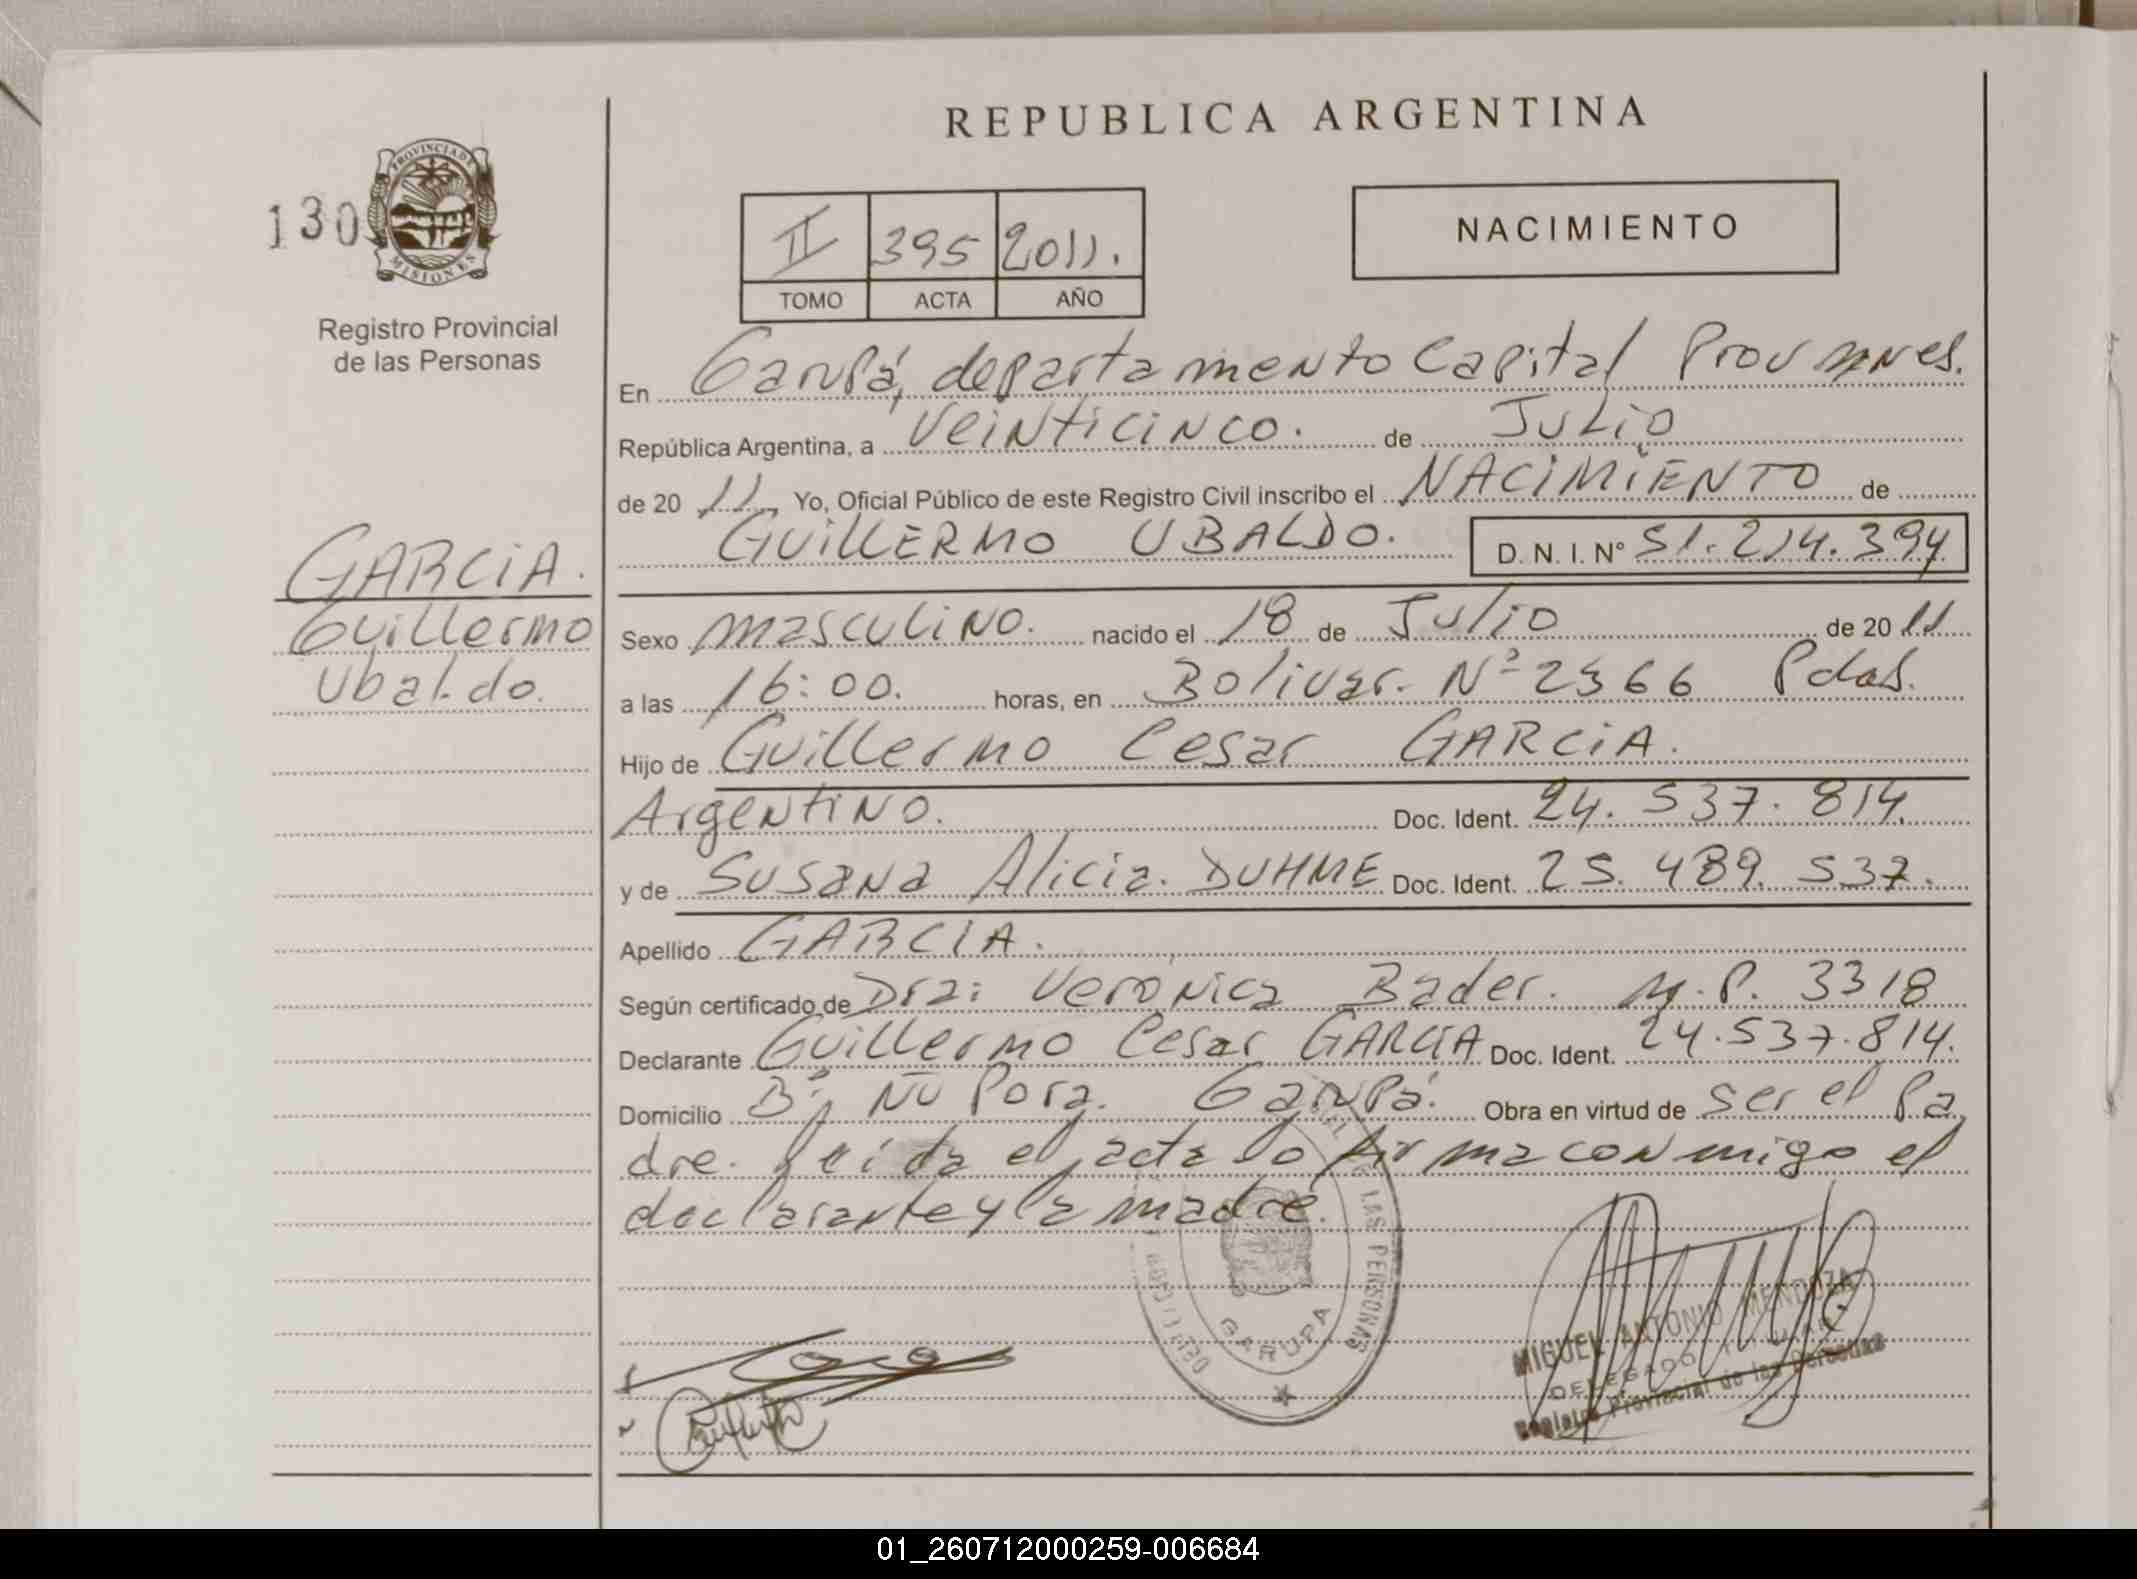 REPUBLICA ARGENTINA
130
PROVINCIA DE
MISIONES
Registro Provincial
de las Personas
II 395 2011.
TOMO ACTA AÑO
NACIMIENTO
En Garupá, departamento Capital Prov mnes.
República Argentina, a veinticinco. de Julio
de 20 11, Yo, Oficial Público de este Registro Civil inscribo el NACIMIENTO de
GUILLERMO UBALDO. D. N. I. Nº 51.214.394
GARCIA.
Guillermo
Ubaldo.
Sexo masculino. nacido el 18 de Julio de 20 11
a las 16:00. horas, en Bolivar. Nº 2366 Pdas.
Hijo de Guillermo Cesar GARCIA.
Argentino. Doc. Ident. 24.537.814.
y de Susana Alicia. DUHME Doc. Ident. 25.489.537.
Apellido GARCIA.
Según certificado de Dra: Veronica Bader. M.P. 3318
Declarante Guillermo Cesar GARCIA Doc. Ident. 24.537.814.
Domicilio Bº Ñu Pora. Garupá. Obra en virtud de ser el pa
dre. Leída el acta lo firma conmigo el
declarante y la madre.
LAS PERSONAS
GARUPA
MIGUEL ANTONIO MENDOZA
DELEGADO TITULAR
Registro Provincial de las Personas
01_260712000259-006684